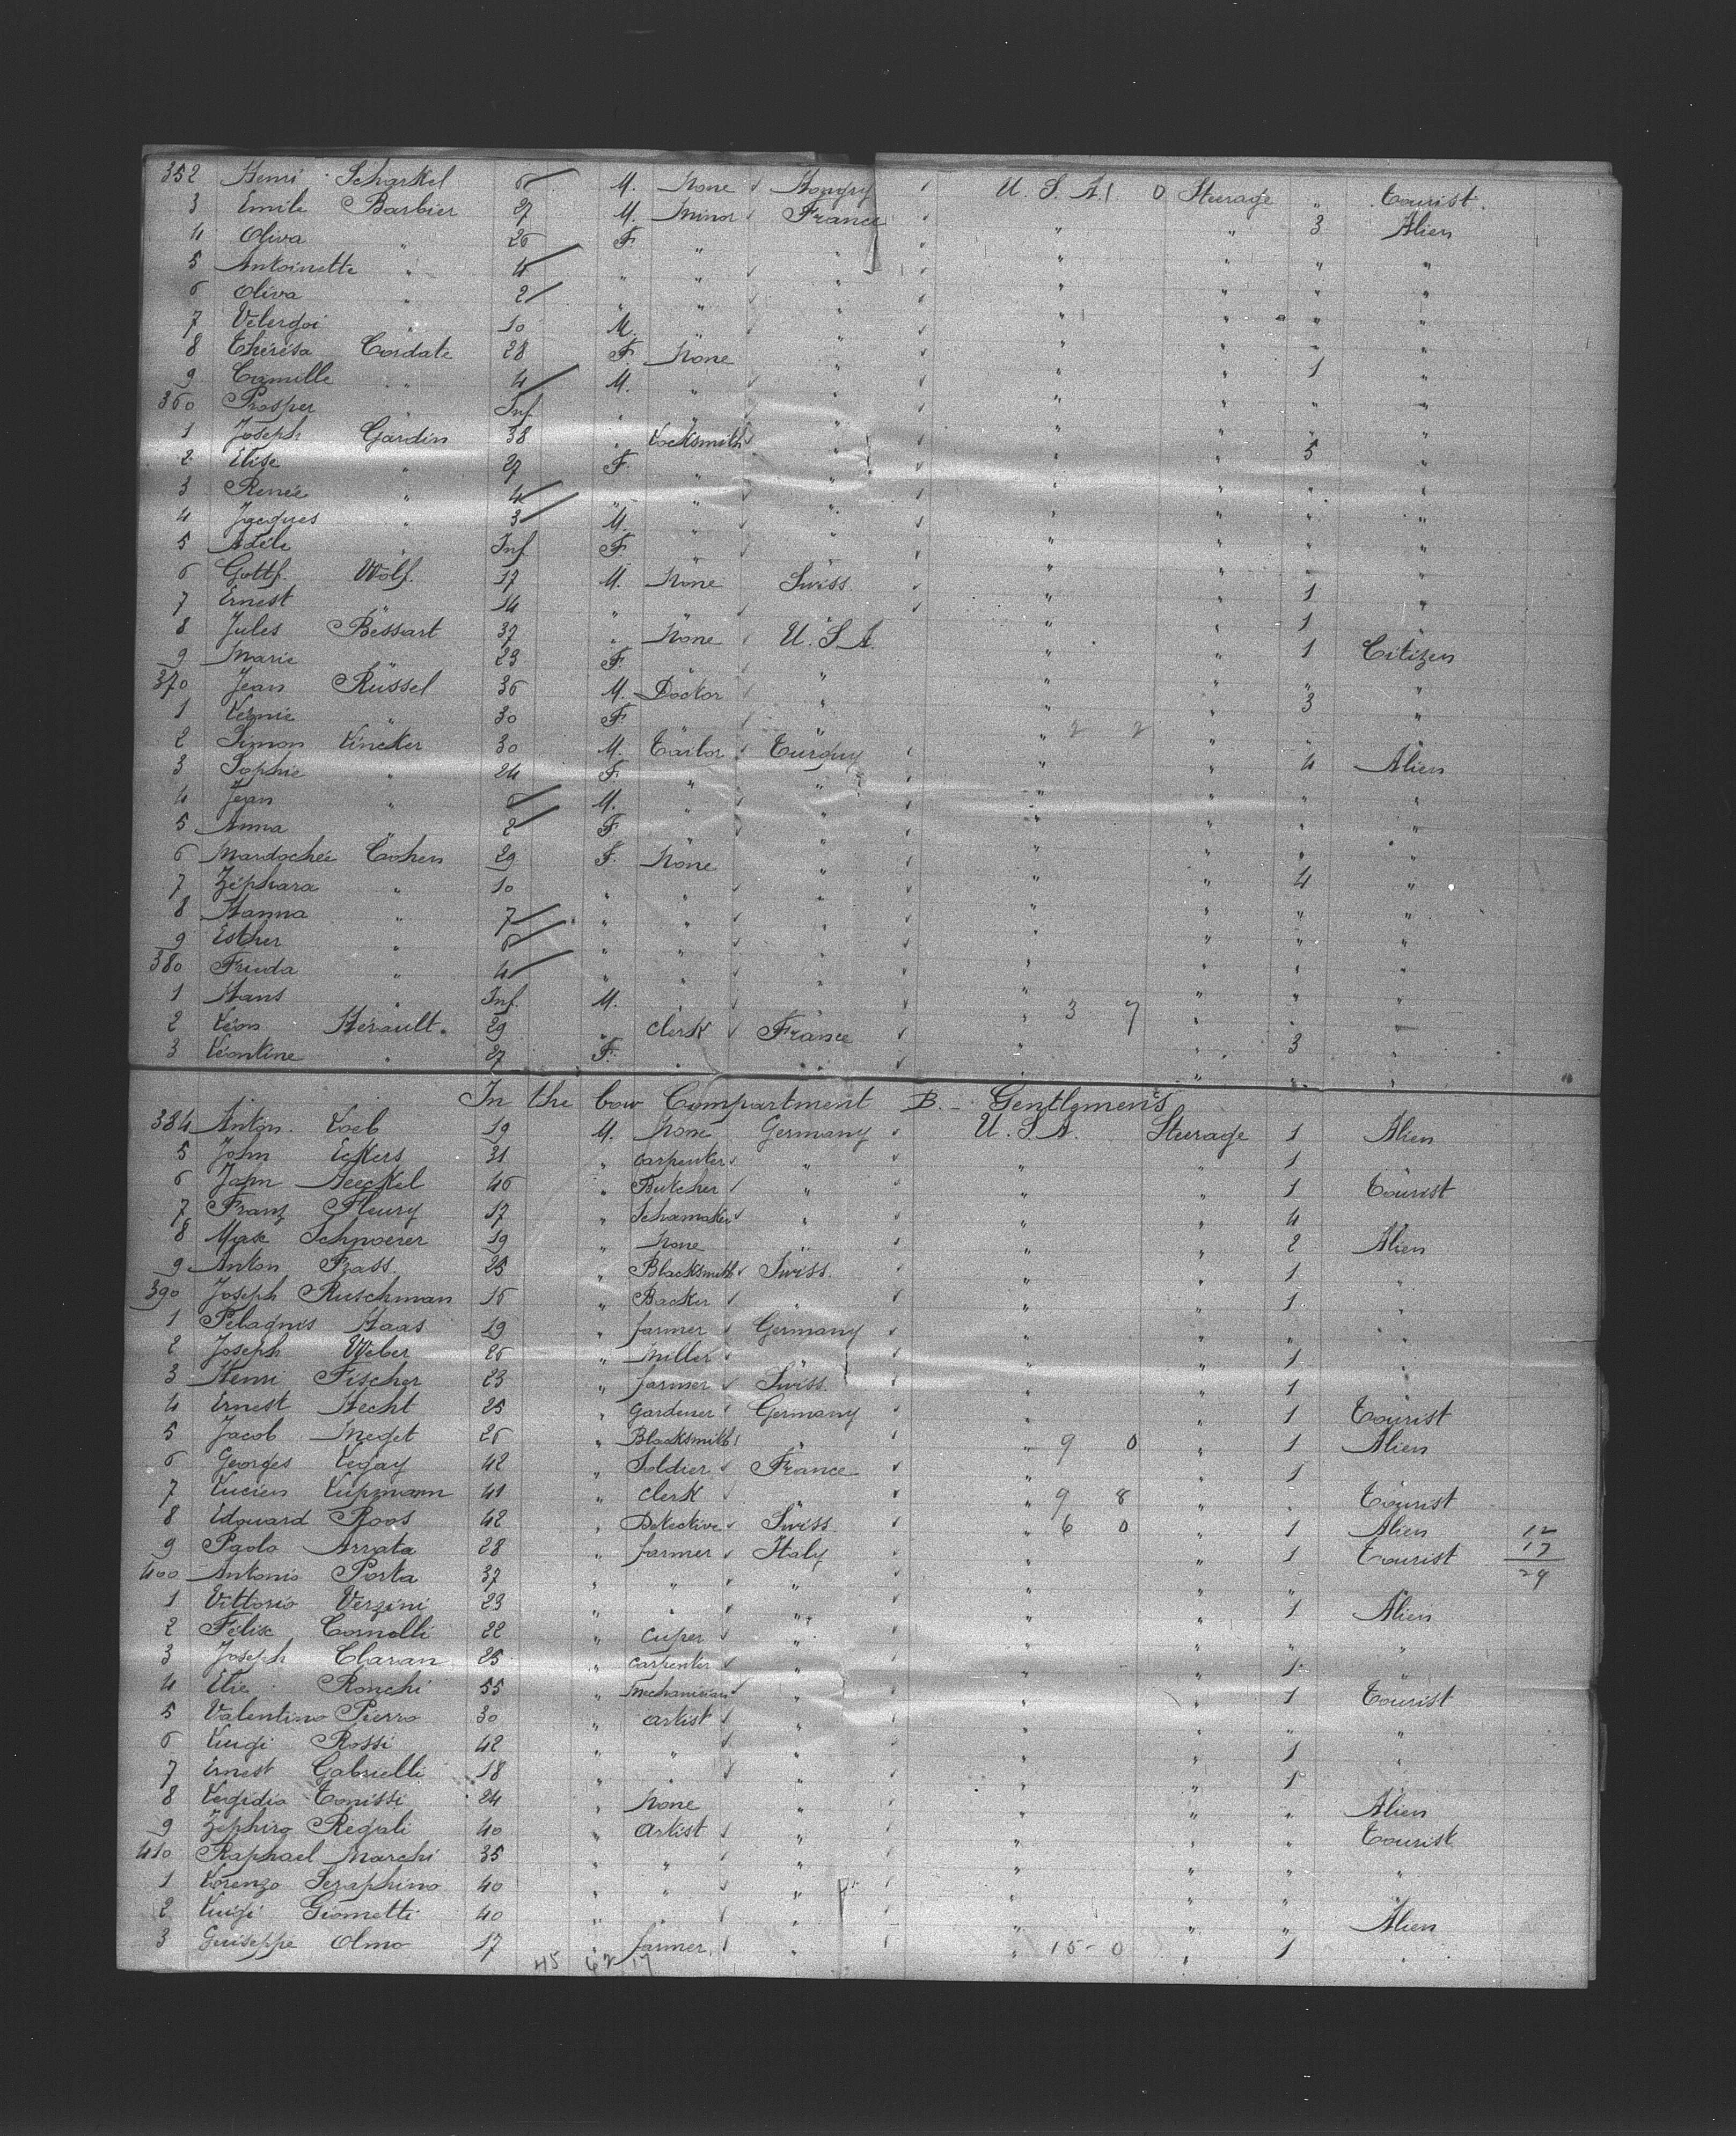 352 Henri Scharkel 6 M. None Hongry U. S. A. 0 Steerage " Tourist.
3 Emile Barbier 27 M. Minor France " " 3 Alien
4 Oliva " 26 F. " " " " " "
5 Antoinette " 4 " " " " " " "
6 Oliva " 2 " " " " " " "
7 " 10 M. " " " " " "
8 Thérésa Cordate 28 F. None " " " 1 "
9 Camille " 4 M. " " " " " "
360 Prosper " Inf. " " " " " " "
1 Joseph Gardin 38 " Locksmith " " " 5 "
2 Elise " 27 F. " " " " " "
3 Renée " 4 " " " " " " "
4 Jacques " 3 M. " " " " " "
5 Adèle " Inf. F. " " " " " "
6 Gottf. Wolf. 17 M. None Swiss " " 1 "
7 Ernest " 14 " " " " " 1 "
8 Jules Bessart 37 " None U. S. A. " " 1 Citizen
9 Marie " 23 F. " " " " "
370 Jean Rüssel 36 M. Doctor " " " 3 "
1 " 30 F. " 2 2 " " "
2 Simon Lincker 30 M. Tailor Turquy " " 4 Alien
3 Sophie " 24 F. " " " " " "
4 Jean " 6 M. " " " " " "
5 Anna " 2 F. " " " " " "
6 Mardochée Cohen 29 F. None " " " 4 "
7 Zéphara " 10 " " " " " " "
8 Hanna " 7 " " " " " " "
9 Esther " 6 " " " " " " "
380 Frieda " 4 " " " " " " "
1 Hans " Inf. M. " " " 3 7 " " "
2 Léon Hérault. 29 " Clerk France " " 3 "
3 Léontine " 27 F. " " " " " "
In the bow Compartment B. - Gentlemen's
384 Anton. Loeb 19 M. None Germany U. S. A. Steerage 1 Alien
5 John Eckers 31 " Carpenter " " " 1
6 Heeckel 46 " Butcher " " " 1 Tourist
7 Franz Fleury 17 " Schœmaker " " " 4
8 Max Schnoerer 19 " None " " " 2 Alien
9 Anton Frass. 25 " Blacksmith Swiss. " " 1 "
390 Joseph Ruschman 16 " Backer " " " 1 "
1 Pelagnis Haas 19 " farmer Germany " " " "
2 Joseph Weber 26 " Miller " " " 1 "
3 Henri Fischer 23 " farmer Swiss. " " 1 "
4 Ernest Hecht 25 " Gardener Germany " " 1 Tourist
5 Jacob Meget 26 " Blacksmith " " 9 0 " 1 Alien
6 Georges Legay 42 " Soldier France " " 1
7 Lucien Lupmann 41 " Clerk " " 9 8 " " Tourist
8 Edouard Roos 42 " Detective Swiss " 6 0 " 1 Alien 12
9 Paolo Arrata 28 " farmer Italy " " 1 Tourist 17
400 Antonio Porta 37 " " " " " " 29
1 Vittorio Verzini 23 " " " " " 1 Alien
2 Félix Cornolli 22 " Cuper " " " " "
3 Joseph Claran 25 " Carpenter " " " 1 "
4 Elie Ronchi 55 " Mechanician " " " 1 Tourist
5 Valentino Pierro 30 " artist " " " " "
6 Luigi Rossi 42 " " " " " 1 "
7 Ernest Gabrielli 18 " " " " " 1
8 Legidio Tonissi 24 " None " " " " Alien
9 Zéphiro Regali 40 " artist " " " " Tourist
410 Raphael Marchi 35 " " " " " " "
1 Lorenzo Seraphino 40 " " " " " " "
2 Luigi Giometti 40 " " " " " " Alien
3 Guiseppe Olmo 17 " farmer " " 15-0 " 1 "
45 62 17